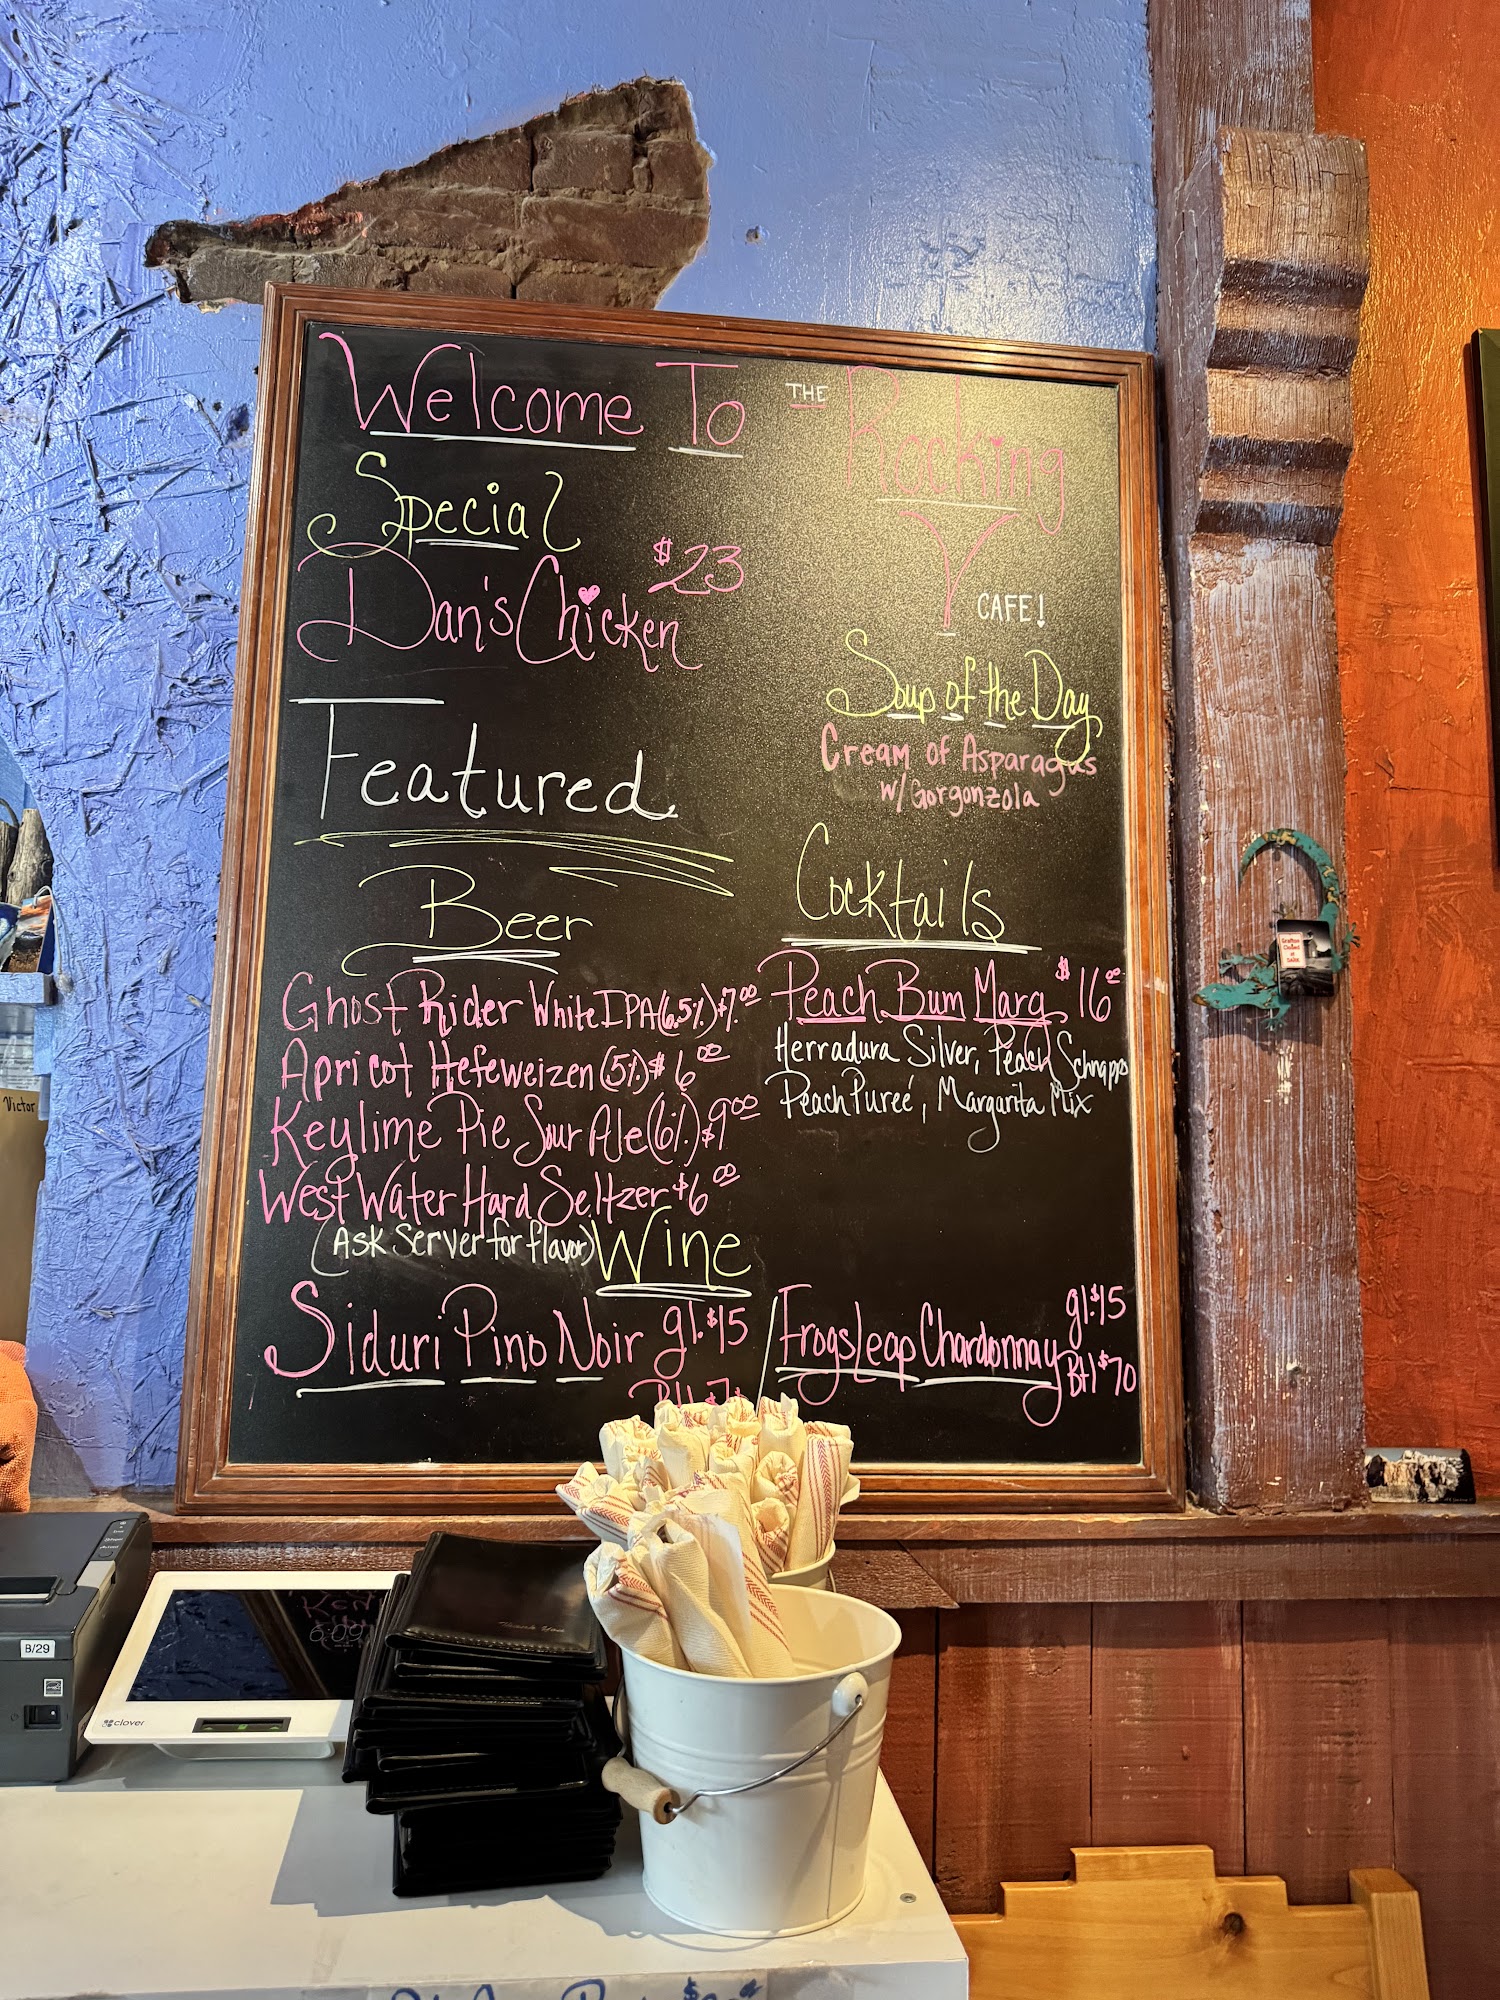 Welcome To THE Rocking
Y
CAFE!
Special
Dan's Chicken $23
Soup of the Day
Cream of Asparagus
w/Gorgonzola
Featured
Beer
Ghost Rider White IPA (6.5%) $7.00
Apricot Hefeweizen (5%) $6.00
Keylime Pie Sour Ale (6%) $9.00
West Water Hard Seltzer $6.00
(Ask Server for flavor)
Cocktails
Peach Bum Marg $16.00
Herradura Silver, Peach Schnapps
Peach Pureé, Margarita Mix
Wine
Siduri Pino Noir gl. $15
Btl $7
Frogs Leap Chardonnay gl. $15
Btl $70
Victor
B/29
clover
Thank You